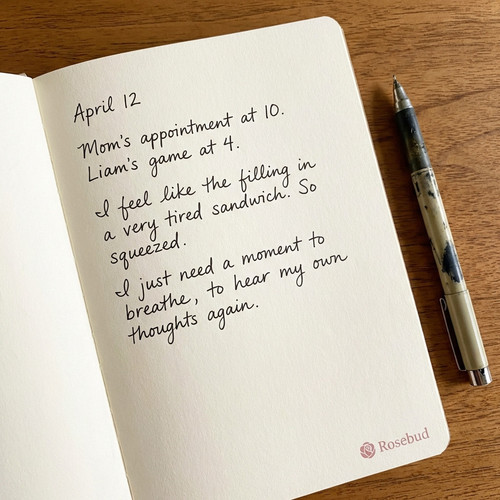 April 12
Mom's appointment at 10.
Liam's game at 4.
I feel like the filling in
a very tired sandwich. So
squeezed.
I just need a moment to
breathe, to hear my own
thoughts again.
Rosebud